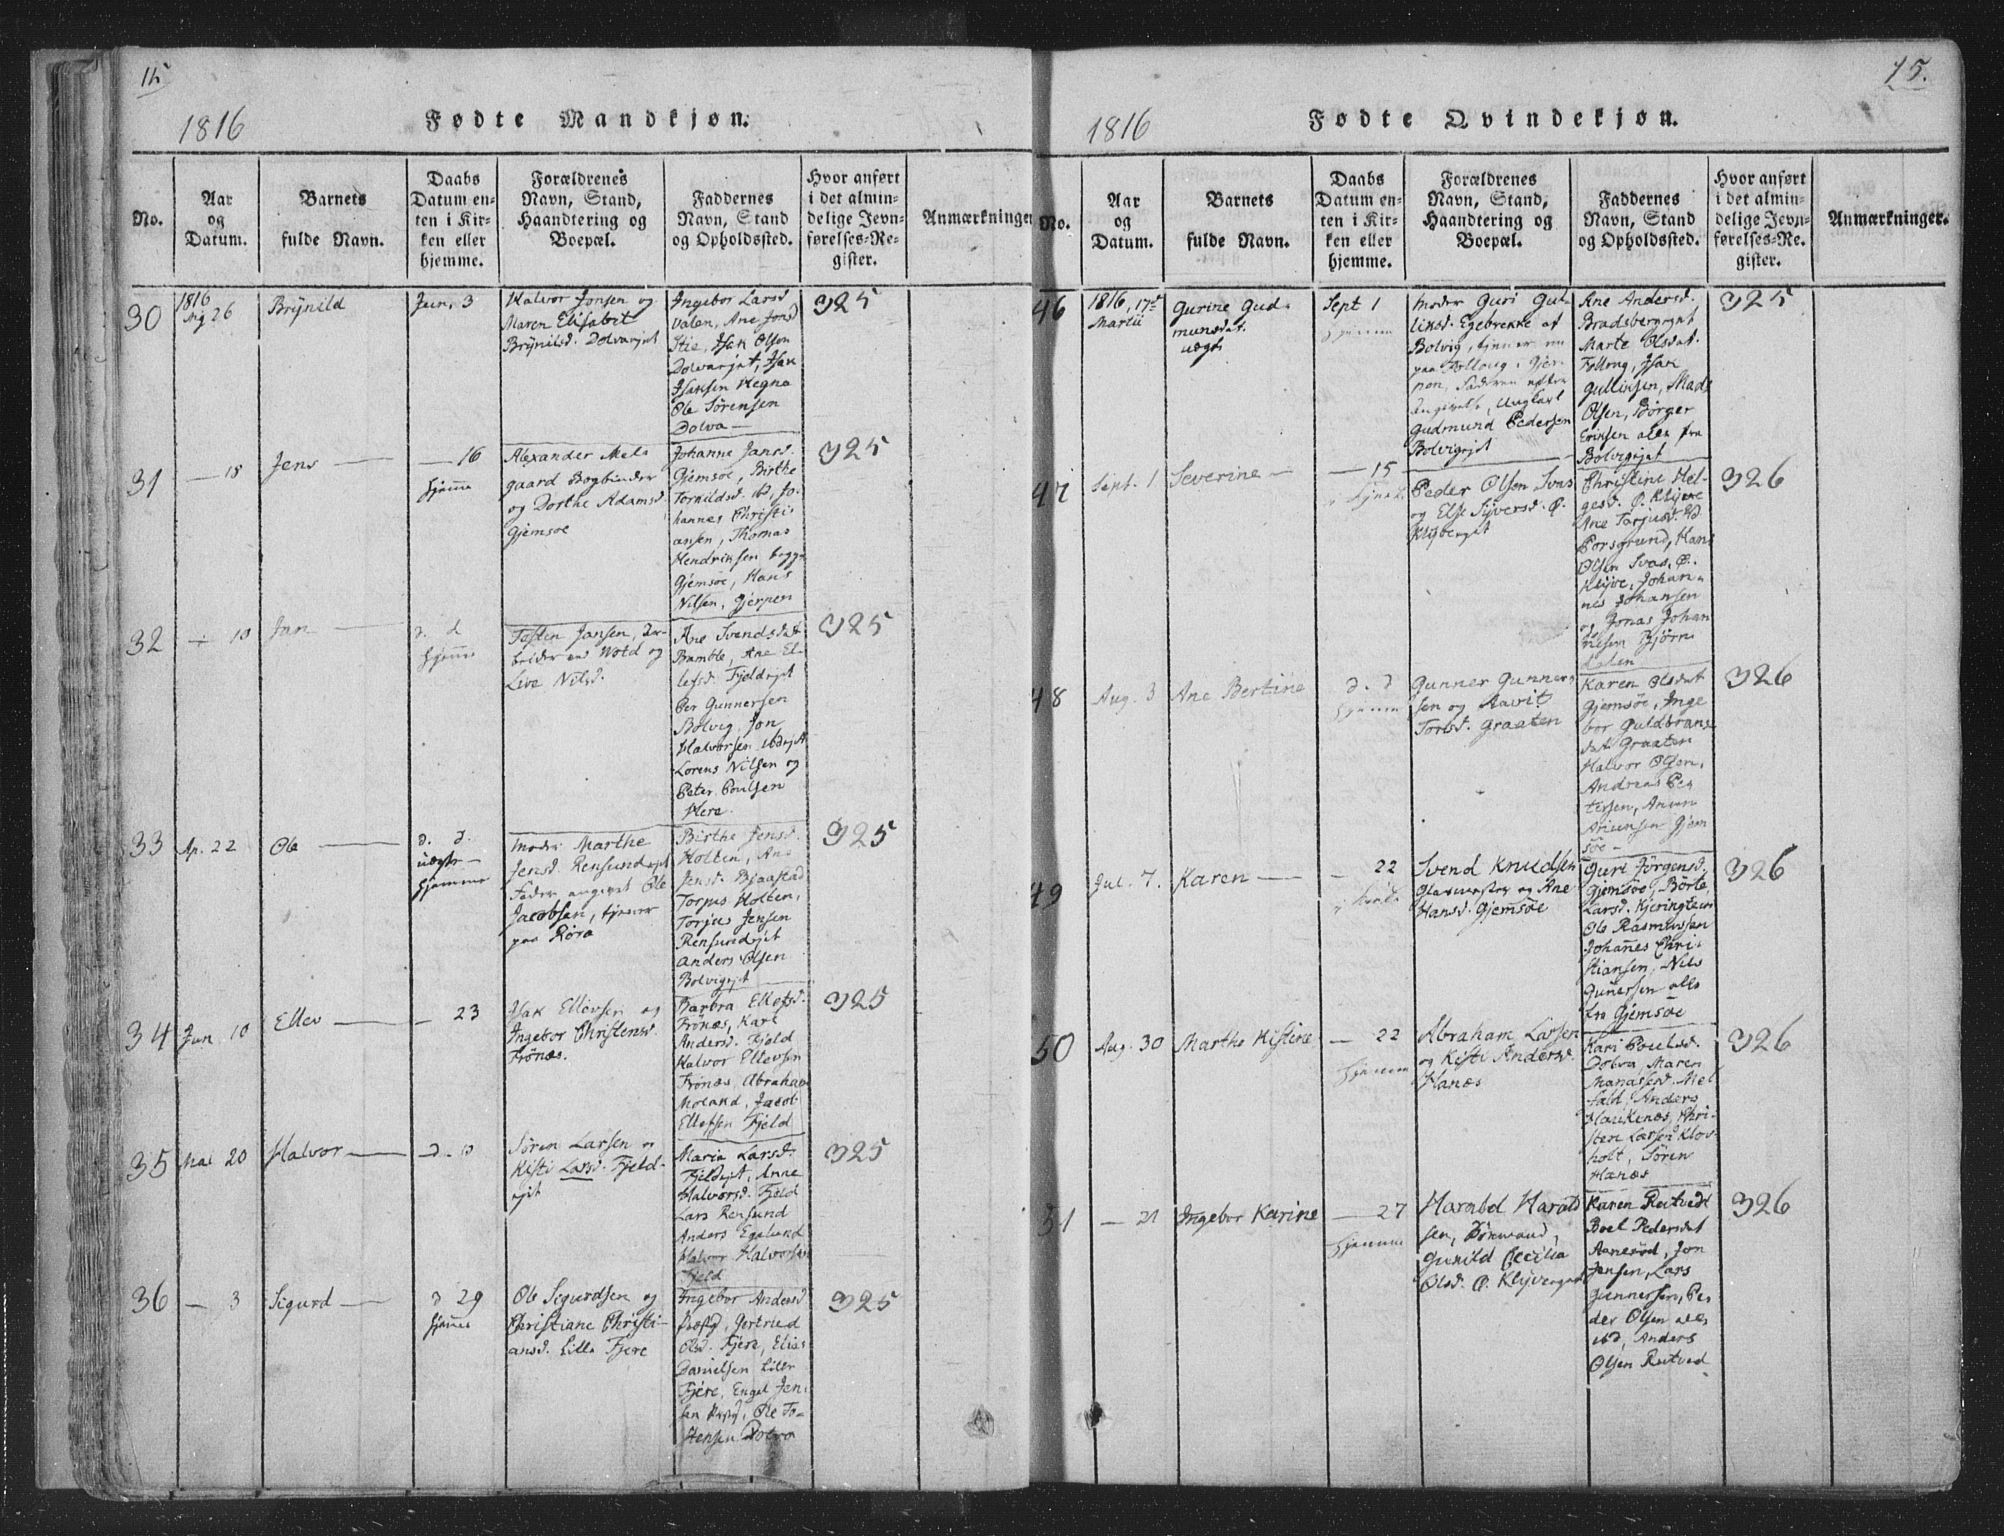 15
1816
Fødte Mandkjøn.
No.
Aar
og
Datum.
Barnets
fulde Navn.
Daabs
Datum en-
ten i Kir-
ken eller
hjemme.
Forældrenes
Navn, Stand,
Haandtering og
Boepæl.
Faddernes
Navn, Stand
og Opholdssted.
Hvor anført
i det almin-
delige Jevn-
førelses-Re-
gister.
Anmærkninger
30
1816
26
Brÿnild
Jun. 3
Halvor Jonsen og
Maren Elisabet
Brÿnilsd. Dolvaejet
Ingebor Larsd
Valen, Ane Jonsd
Stie, Isak Olsen
Dolvaejet, Isak
Isaksen Hegna
Ole Sørensen
Dolva
325
31
— 18
Jens
— 16
hjemme
Alexander Mels
gaard Bogbinder
og Dorthe Adamsd
Gjemsøe
Johanne Jansd.
Gjemsøe, Birthe
Torkildsd. ibd, Jo-
hannes Christi-
ansen, Thomas
Hendriksen begge
Gjemsøe, Hans
Nilsen, Gjerpen
325
32
10
Jan
d. d
hjemme
Tosten Jansen, Ar-
beider ved Wold og
Live Nilsd.
Ane Svendsdat
Bamble, Ane El-
lefsd. Fjeldejet
Per Gunnersen
Bolvig, Jon
Halvorsen ibdejet
Lorens Nilsen og
Peter Poulsen
Here
325
33
Ap. 22
Ole
d. d.
uægte
hjemme
Moder Marthe
Jensd. Rensundejet
Fader angivet Ole
Jacobsen, tjener
paa Røra
Birthe Jensd.
Holten, Ane
Jensd. Bjaastad
Torjus Holten,
Torjus Jensen
Rensundejet
Anders Olsen
Bolvigejet
325
34
Jun 10
Ellev
— 23
Isak Ellevsen og
Ingebor Christensd.
Frönæs.
Barbra Ellefsd.
Frönæs, Kari
Andersd. Fjeld
Halvor Ellevsen
Frönæs, Abraham
Moland, Jacob
Ellefsen Fjeld
325
35
Mai 20
Halvor
d. d
Sören Larsen og
Kisti Larsd. Fjeld-
ejet
Maria Larsd.
Fjeldejet, Anne
Halvorsd. Fjeld
Lars Rensund
Anders Egelund
Halvor Halvorsen
Fjeld
325
36
— 3
Sigurd
d 29
hjemme
Ole Sigurdsen og
Christiane Christi-
ansd. Lille Fjere
Ingebor Andersd
Gertrud
Olsd. Fjere, Elias
Danielsen Lille
Fjere, Engel Jen-
sen, Ole To-
stensen Dolva
325
15.
1816
Fødte Qvindekjøn.
No.
Aar
og
Datum.
Barnets
fulde Navn.
Daabs
Datum en-
ten i Kir-
ken eller
hjemme.
Forældrenes
Navn, Stand,
Haandtering og
Boepæl.
Faddernes
Navn, Stand
og Opholdssted.
Hvor anført
i det almin-
delige Jevn-
førelses-Re-
gister.
Anmærkninger.
46
1816, 17de
Martii
Gurine Gud-
munsdat.
uægte
Sept 1
hjemme
Moder Guri Gul-
liksd. Egebrekke af
Bolvig, tjener nu
paa Follaug i Gjer-
pen, Faderen efter
Angivelse, Ungkarl
Gudmund Pedersen
Bolvigejet
Ane Andersd.
Bradsbergejet
Marte Olsdat.
Follaug, Isak
Gulliksen, Mads
Olsen, Börger
Eriksen alle fra
Bolvigejet
325
47
Sept. 1
Severine
— 15
Peder Olsen Svas
og Else Siversd. Ø.
Klÿveejet
Christine Hel-
gesd. Ø. Klyve
Ane Torjusd. Ed
Porsgrund, Hans
Olsen Svas, Ø.
Klyve, Johan-
nes Johansen
og Jonas Johan
nesen Bjørn
dalen
326
48
Aug. 3
Ane Bertine
d. d
hjemme
Gunner Gunner-
sen og Aavit
Torsd. Graaten
Karen Olsdat
Gjemsøe, Inge
bor Guldbrans
dat Graaten
Halvor Olsen,
Andreas Pe-
tersen, Anun
Anunsen Gjem
søe
326
49
Jul. 7.
Karen
— 22
Svend Knudsen
Glasmester og Ane
Hansd. Gjemsøe
Guri Jörgensd.
Gjemsøe, Börte
Larsd. Kjeringteien
Ole Rasmussen
Johannes Chri-
stiansen, Nils
Gunersen alle
fra Gjemsøe
326
50
Aug. 30
Marthe Kistine
— 22
hjemme
Abraham Larsen
og Kisti Andersd.
Hanæs
Kari Poulsd.
Dolva, Maren
Manassesd. Mel
fald, Anders
Haukenæs, Chri-
sten Larsen Klov
holt, Sören
Hanæs
326
51
— 21
Ingebor Karine
— 27
hjemme
Harald Harald
sen,
Gunild Cecilia
Olsd. Ø. Klyveejet
Karen Rutved
Boel Pedersdat
Aanerød, Jon
Jansen, Lars
Gunnersen, Pe-
der Olsen alle
ibd, Anders
Olsen Rutved
326